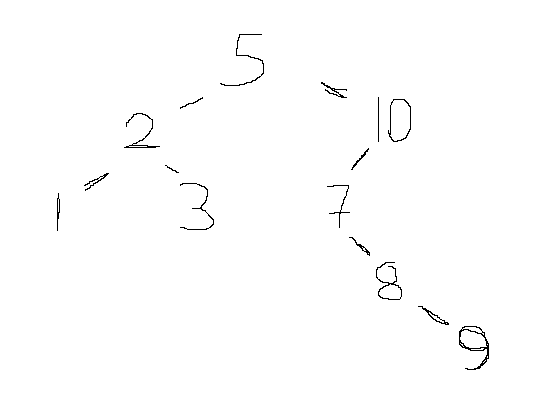 5
2 10
1 3 7
8
9